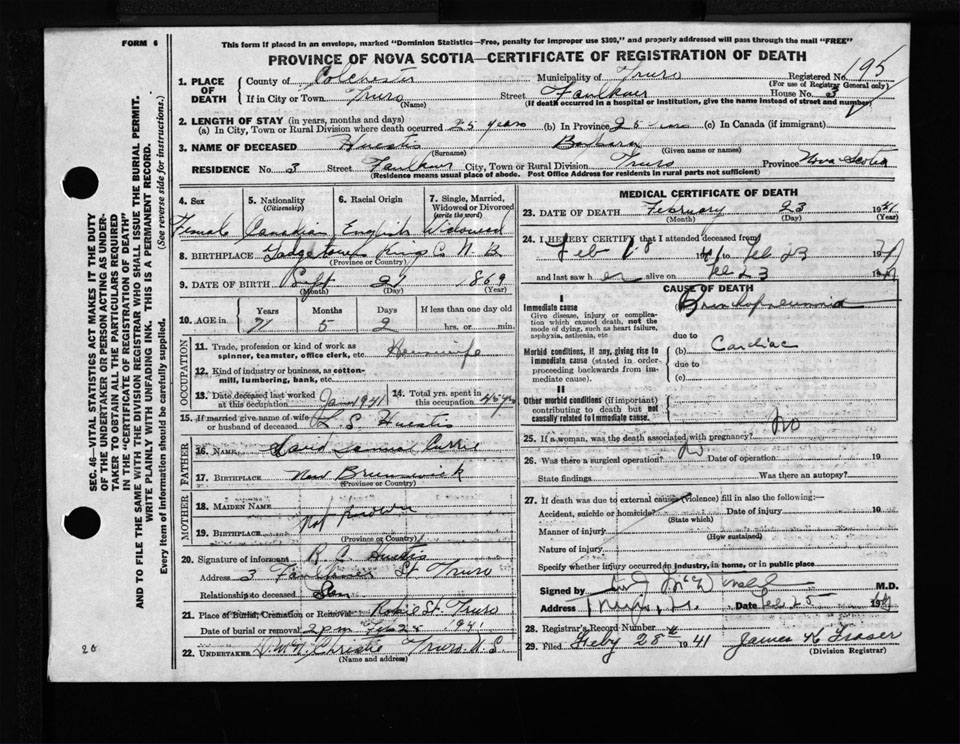 FORM 6
This form if placed in an envelope, marked "Dominion Statistics—Free, penalty for improper use $300," and properly addressed will pass through the mail "FREE"
PROVINCE OF NOVA SCOTIA—CERTIFICATE OF REGISTRATION OF DEATH
1. PLACE OF DEATH County of Colchester Municipality of Truro Registered No. 195
(For use of Registrar General only)
If in City or Town Truro (Name) Street Faulkner House No. 3
(If death occurred in a hospital or institution, give the name instead of street and number)
2. LENGTH OF STAY (in years, months and days)
(a) In City, Town or Rural Division where death occurred 25 years (b) In Province 25 (c) In Canada (if immigrant)
3. NAME OF DECEASED Huestis (Surname) Barbara (Given name or names)
RESIDENCE No. 3 Street Faulkner City, Town or Rural Division Truro Province Nova Scotia
(Residence means usual place of abode. Post Office Address for residents in rural parts not sufficient)
4. Sex 5. Nationality (Citizenship) 6. Racial Origin 7. Single, Married, Widowed or Divorced (write the word)
Female Canadian English Widowed
8. BIRTHPLACE Kings C. N. B
(Province or Country)
9. DATE OF BIRTH Sept (Month) 21 (Day) 1869 (Year)
10. AGE in Years Months Days If less than one day old
71 5 2 hrs. or min.
OCCUPATION
11. Trade, profession or kind of work as spinner, teamster, office clerk, etc. Housewife
12. Kind of industry or business, as cotton-mill, lumbering, bank, etc.
13. Date deceased last worked at this occupation Jan 1941 14. Total yrs. spent in this occupation
15. If married give name of wife or husband of deceased L. S. Huestis
FATHER
16. NAME David Samuel Currie
17. BIRTHPLACE New Brunswick
(Province or Country)
MOTHER
18. MAIDEN NAME
19. BIRTHPLACE Not Known
(Province or Country)
20. Signature of informant R. C. Huestis
Address 3 Faulkner St Truro
Relationship to deceased Son
21. Place of Burial, Cremation or Removal Robie St. Truro
Date of burial or removal 2 pm Feb 25 1941
22. UNDERTAKER Christie Truro N.S.
(Name and address)
MEDICAL CERTIFICATE OF DEATH
23. DATE OF DEATH February (Month) 23 (Day) 1941 (Year)
24. I HEREBY CERTIFY that I attended deceased from
Feb 18 1941 to Feb 23 1941
and last saw her alive on Feb 23 1941
CAUSE OF DEATH
I
Immediate cause Bronchopneumonia
Give disease, injury or complication which caused death, not the mode of dying, such as heart failure, asphyxia, asthenia, etc
due to
Morbid conditions, if any, giving rise to immediate cause (stated in order proceeding backwards from immediate cause).
(b) Cardiac
due to
(c)
II
Other morbid conditions (if important) contributing to death but not causally related to immediate cause.
25. If a woman, was the death associated with pregnancy? No
26. Was there a surgical operation? No Date of operation 19
State findings Was there an autopsy?
27. If death was due to external causes (violence) fill in also the following:—
Accident, suicide or homicide? (State which) Date of injury 19
Manner of injury (How sustained)
Nature of injury
Specify whether injury occurred in industry, in home, or in public place
Signed by M.D.
Address Date Feb 25 1941
28. Registrar's Record Number
29. Filed Feby 28 1941 James K Fraser
(Division Registrar)
SEC. 46—VITAL STATISTICS ACT MAKES IT THE DUTY
OF THE UNDERTAKER OR PERSON ACTING AS UNDER-
TAKER TO OBTAIN ALL THE PARTICULARS REQUIRED
IN THE "CERTIFICATE OF REGISTRATION OF DEATH"
AND TO FILE THE SAME WITH THE DIVISION REGISTRAR WHO SHALL ISSUE THE BURIAL PERMIT.
WRITE PLAINLY WITH UNFADING INK. THIS IS A PERMANENT RECORD.
Every item of information should be carefully supplied. (See reverse side for instructions.)
20